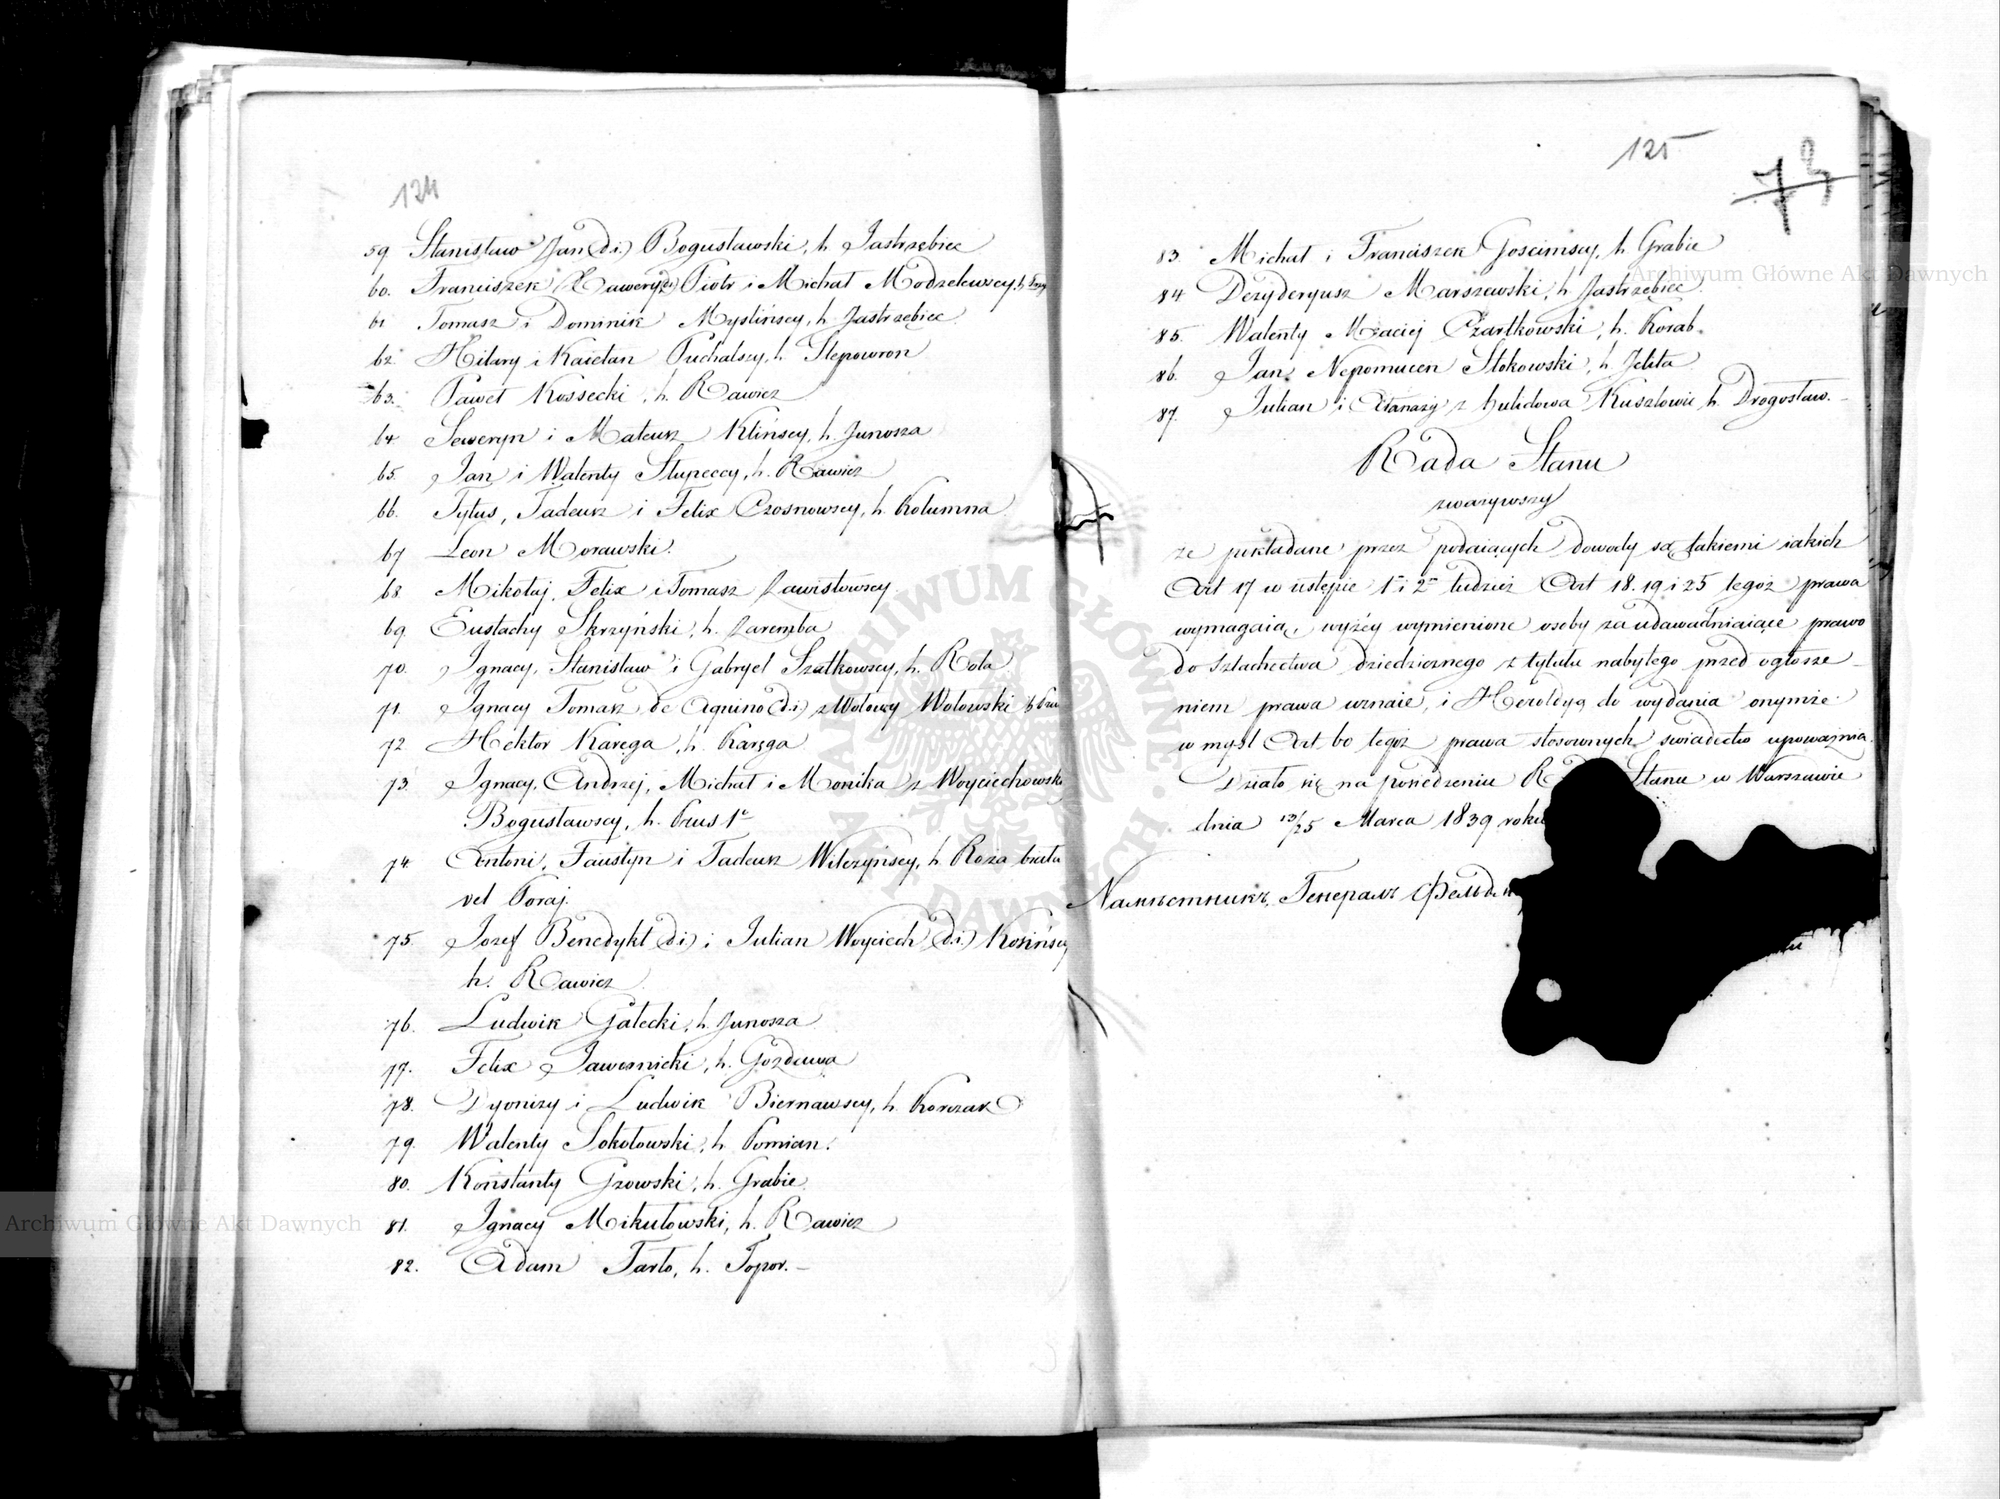 124
59 Stanisław Jan (d.i.) Bogusławski, h. Jastrzębiec
60. Franciszek Xawery (d.i.) Piotr i Michał Modzelewscy, h.
61 Tomasz i Dominik Myślińscy, h. Jastrzębiec
62. Hilary i Kaietan Puchalscy, h. Ślepowron
63. Paweł Kossecki, h. Rawicz
64 Seweryn i Mateusz Klińscy, h. Junosza
65. Jan i Walenty Słupeccy, h. Rawicz
66. Tytus, Tadeusz i Felix Czosnowscy, h. Kolumna
67 Leon Morawski.
68 Mikołaj, Felix i Tomasz Zawistowscy
69. Eustachy Skrzyński, h. Zaremba
70. Ignacy, Stanisław i Gabryel Szatkowscy, h. Rola
71. Ignacy Tomasz de Aquino (d.i.) z Wołowy Wołowski h.
72. Hektor Karęga, h. Karęga
73. Ignacy, Andrzej, Michał i Monika z Woyciechowsk
Bogusławscy, h. Prus 1o
74. Antoni, Faustyn i Tadeusz Wilczyńscy, h. Roza biała
vel Poraj.
75. Jozef Benedykt (d.i.) i Julian Woyciech (d.i.) Kosińscy
h. Rawicz
76. Ludwik Gałecki, h. Junosza
77. Felix Jawornicki, h. Gozdawa
78. Dyonizy i Ludwik Biernawscy, h. Korczak
79. Walenty Sokołowski, h. Pomian.
80. Konstanty Gzowski, h. Grabie
81. Ignacy Mikułowski, h. Rawicz
82. Adam Tarło, h. Topor.—
125
83. Michał i Franciszek Gościmscy, h. Grabie
84 Dezyderyusz Marszewski, h. Jastrzębiec
85. Walenty Maciej Czartkowski, h. Korab.
86. Jan Nepomucen Stokowski, h. Jelita
87. Julian i Atanazy z Kuszłowie h. Drogosław.—
Rada Stanu
zważywszy
że pokładane przez podaiących dowody są takiemi iakich
Art 17 w ustępie 1m i 2m tudzież Art 18. 19 i 25 tegoż prawa
wymagaią, wyżey wymienione osoby za udawadniaiące prawo
do szlachectwa dziedzicznego z tytułu nabytego przed ogłosze-
niem prawa uznaie, i Heroldyą do wydania onymże
w myśl Art 60 tegoż prawa stosownych świadectw upoważnia.
Działo się na posiedzeniu Stanu w Warszawie
dnia 13/25 Marca 1839 roku
Намѣстникъ, Генералъ Фельд
Archiwum Główne Akt Dawnych
Archiwum Główne Akt Dawnych
ARCHIWUM GŁÓWNE AKT DAWNYCH